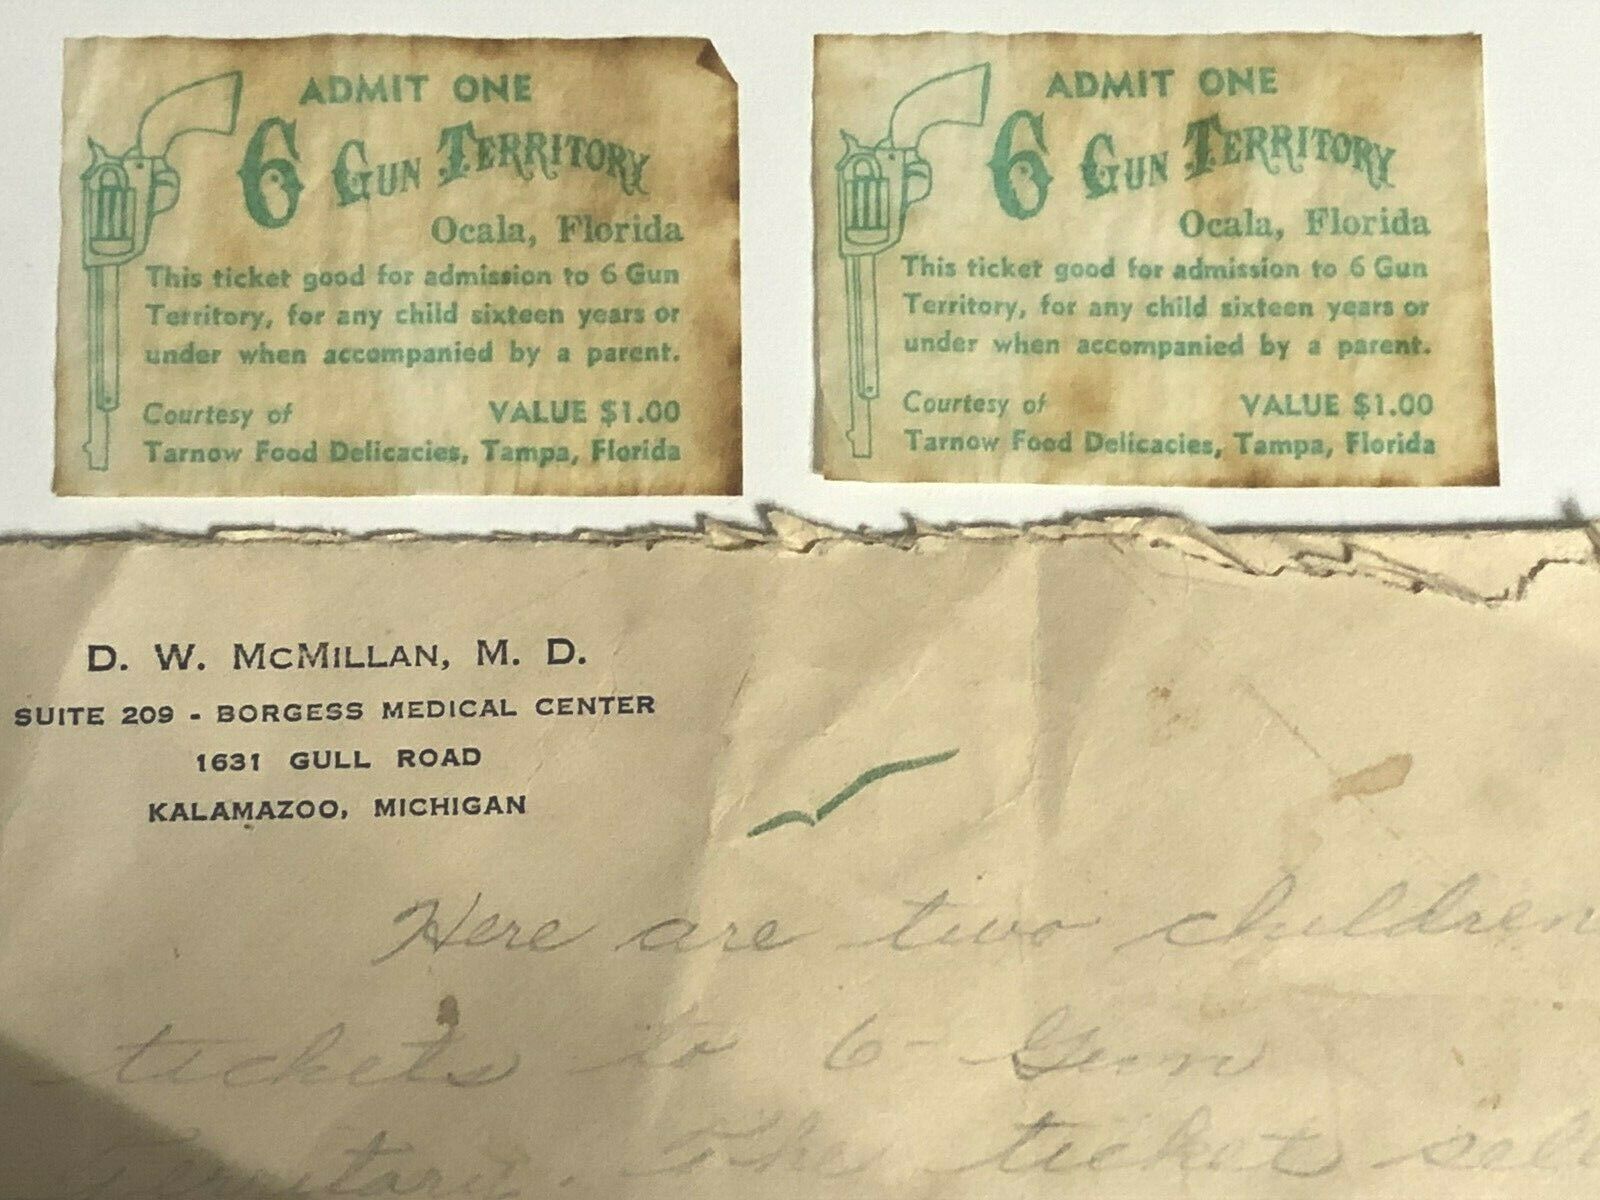 ADMIT ONE
6 GUN TERRITORY
Ocala, Florida
This ticket good for admission to 6 Gun
Territory, for any child sixteen years or
under when accompanied by a parent.
Courtesy of VALUE $1.00
Tarnow Food Delicacies, Tampa, Florida
ADMIT ONE
6 GUN TERRITORY
Ocala, Florida
This ticket good for admission to 6 Gun
Territory, for any child sixteen years or
under when accompanied by a parent.
Courtesy of VALUE $1.00
Tarnow Food Delicacies, Tampa, Florida
D. W. McMILLAN, M. D.
SUITE 209 - BORGESS MEDICAL CENTER
1631 GULL ROAD
KALAMAZOO, MICHIGAN
Here are two children
tickets to 6-Gun
Territory. The ticket sell